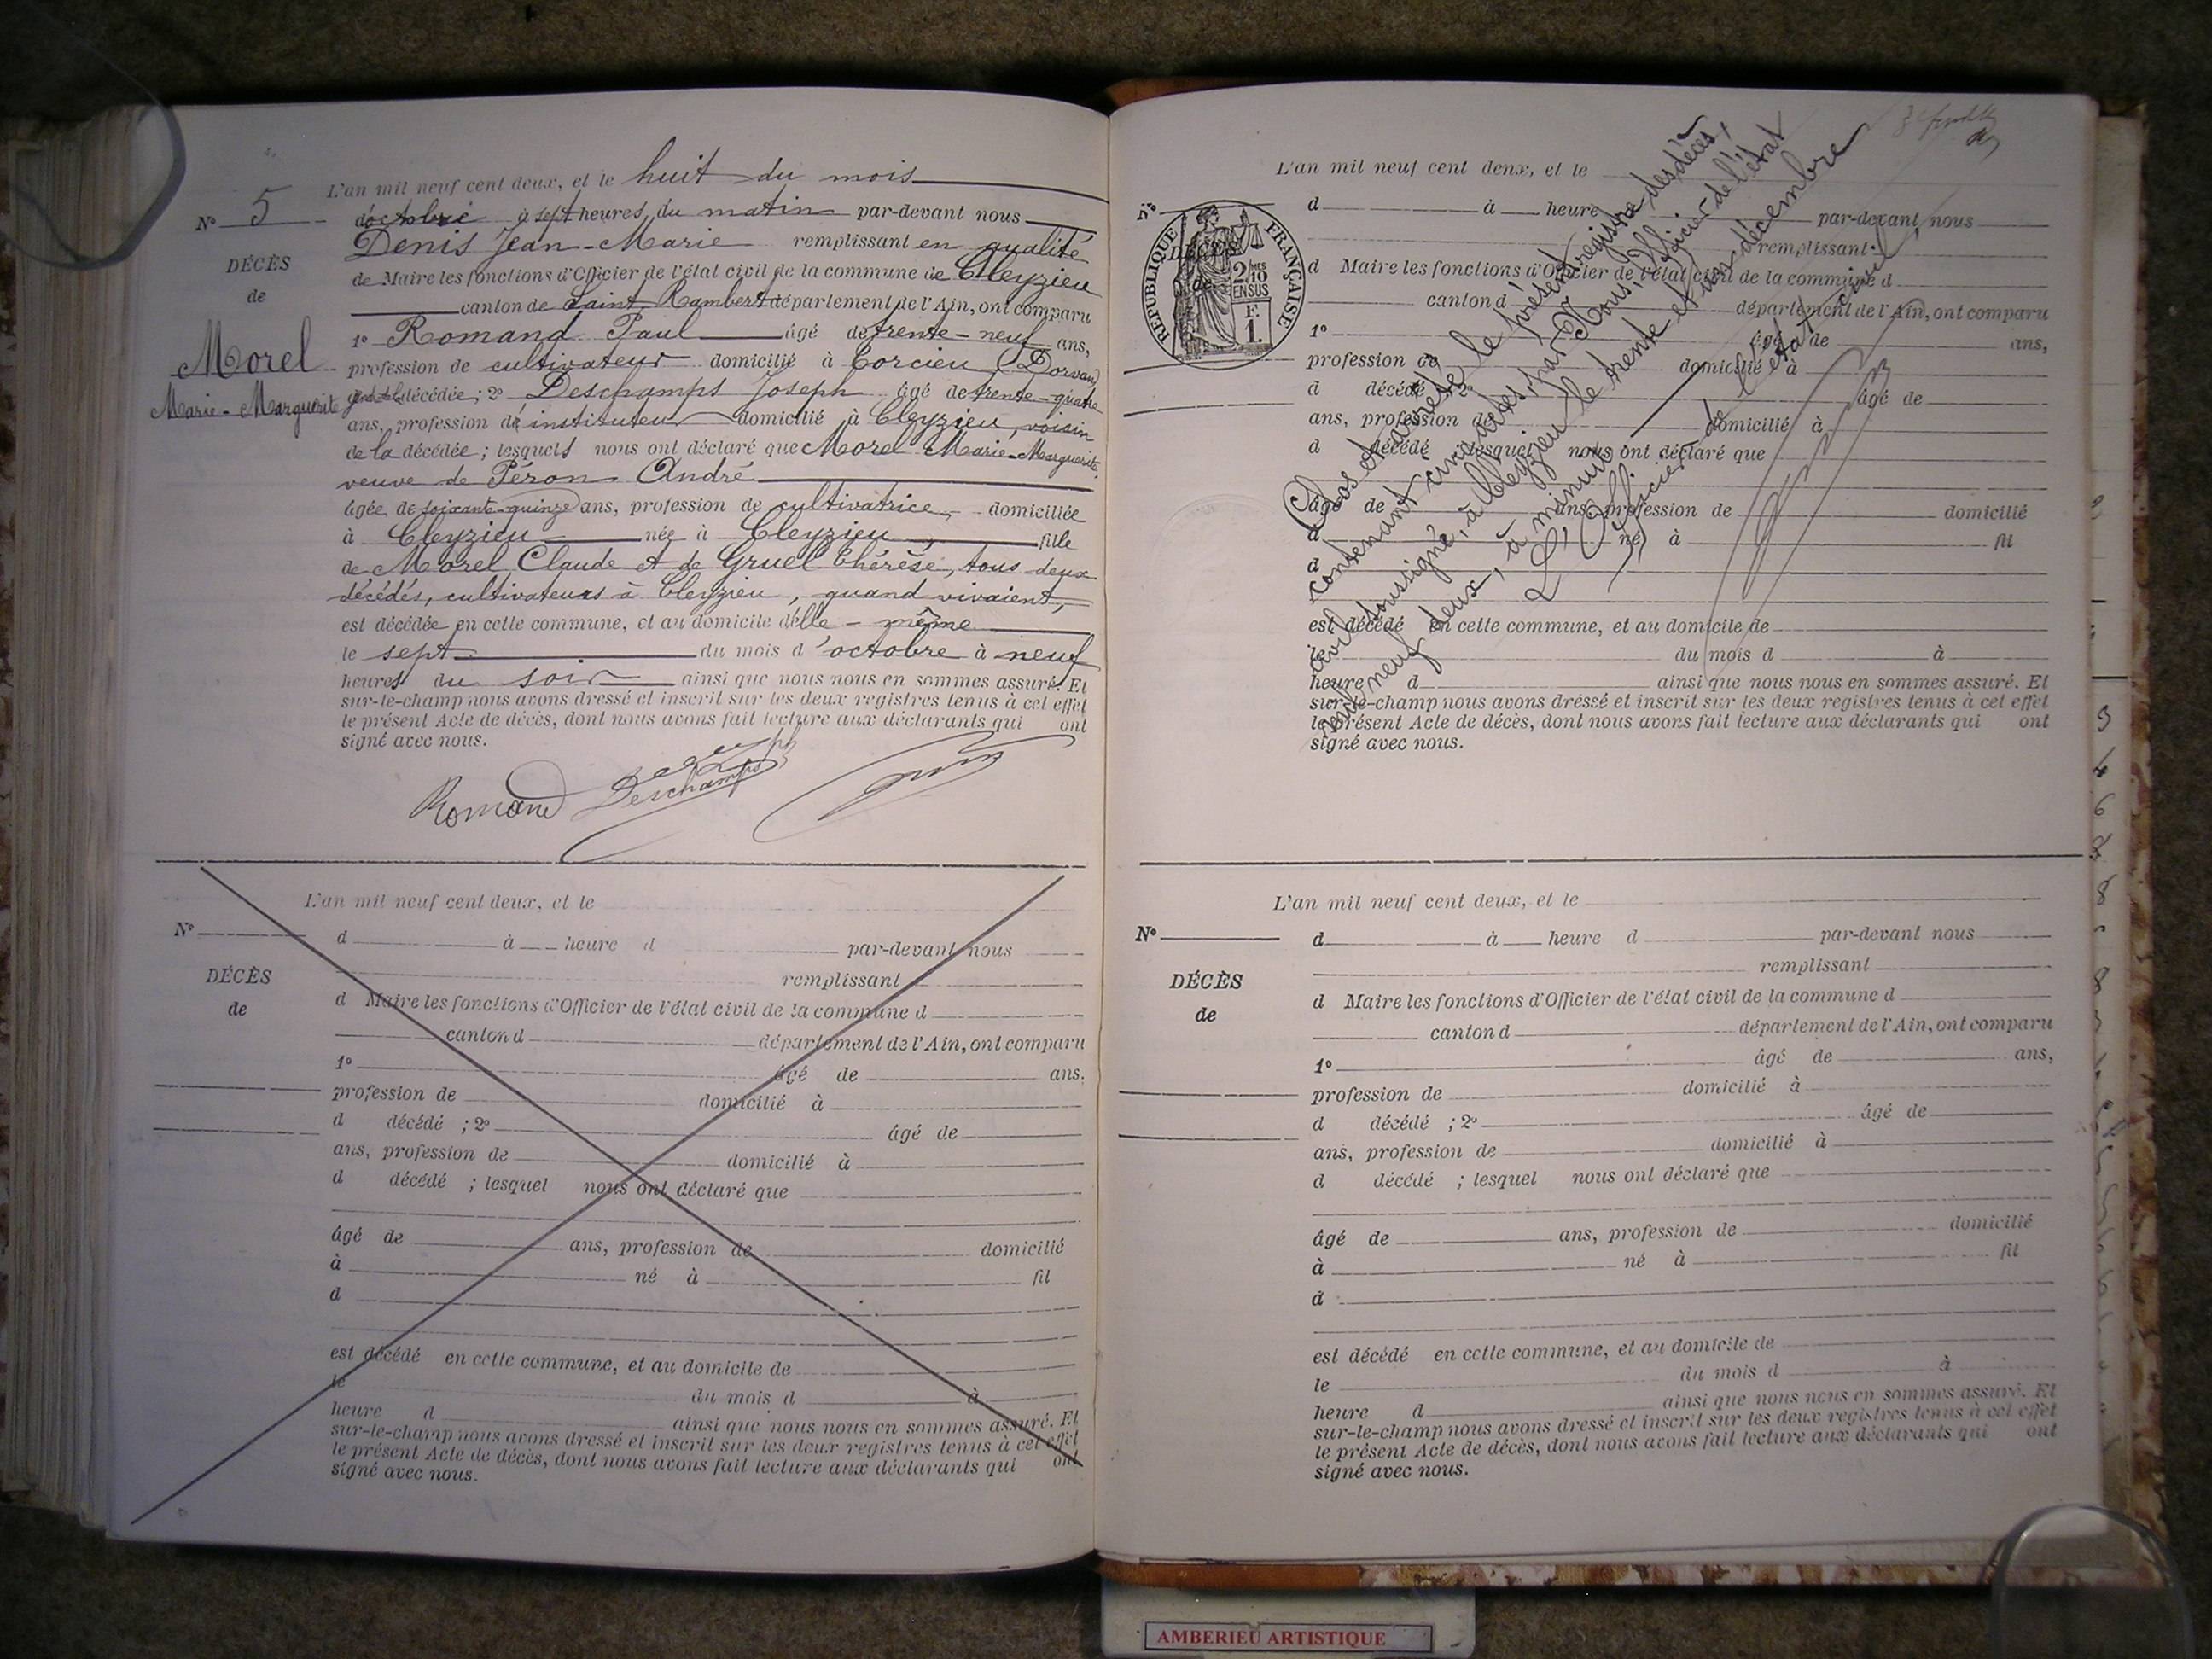 L'an mil neuf cent deux, et le huit du mois
N° 5
d'octobre à sept heures du matin par-devant nous
Denis Jean-Marie remplissant en qualité
DÉCÈS
de Maire les fonctions d'Officier de l'état civil de la commune de Cleyzieu
de
canton de Saint-Rambert département de l'Ain, ont comparu
1° Romand Paul âgé de trente-neuf ans,
Morel
profession de cultivateur domicilié à Torcieu (Dorvan)
Marie-Marguerite
décédée ; 2° Deschamps Joseph âgé de trente-quatre
ans, profession d'instituteur domicilié à Cleyzieu, voisin
de la décédée ; lesquels nous ont déclaré que Morel Marie-Marguerite
veuve de Péron André
âgée de soixante-quinze ans, profession de cultivatrice, domiciliée
à Cleyzieu née à Cleyzieu, fille
de Morel Claude et de Gruel Thérèse, tous deux
décédés, cultivateurs à Cleyzieu, quand vivaient,
est décédée en cette commune, et au domicile d'elle-même
le sept du mois d'octobre à neuf
heures du soir ainsi que nous nous en sommes assuré. Et
sur-le-champ nous avons dressé et inscrit sur les deux registres tenus à cet effet
le présent Acte de décès, dont nous avons fait lecture aux déclarants qui ont
signé avec nous.
Romand Deschamps
L'an mil neuf cent deux, et le
N°
d à heure d par-devant nous
remplissant
DÉCÈS
de
d Maire les fonctions d'Officier de l'état civil de la commune d
canton d département de l'Ain, ont comparu
1° âgé de ans,
profession de domicilié à
d décédé ; 2° âgé de
ans, profession de domicilié à
d décédé ; lesquel nous ont déclaré que
âgé de ans, profession de domicilié
à né à fil
d
est décédé en cette commune, et au domicile de
le du mois d à
heure d ainsi que nous nous en sommes assuré. Et
sur-le-champ nous avons dressé et inscrit sur les deux registres tenus à cet effet
le présent Acte de décès, dont nous avons fait lecture aux déclarants qui ont
signé avec nous.
L'an mil neuf cent deux, et le
N°
d à heure par-devant nous
RÉPUBLIQUE FRANÇAISE
2/10 MES
EN SUS
F.
1.
DÉCÈS
de
remplissant
d Maire les fonctions d'Officier de l'état civil de la commune d
canton d département de l'Ain, ont comparu
1° âgé de ans,
profession de domicilié à
d décédé 2° âgé de
ans, profession de domicilié à
d décédé lesquel nous ont déclaré que
âgé de ans, profession de domicilié
à né à fil
d
est décédé en cette commune, et au domicile de
le du mois d à
heure d ainsi que nous nous en sommes assuré. Et
sur-le-champ nous avons dressé et inscrit sur les deux registres tenus à cet effet
le présent Acte de décès, dont nous avons fait lecture aux déclarants qui ont
signé avec nous.
Clos et arrêté le présent registre des décès,
contenant cinq actes, par Nous, Officier de l'état
civil soussigné, à Cleyzieu le trente et un décembre
neuf cent deux, à minuit.
L'Officier de l'état civil,
L'an mil neuf cent deux, et le
N°
d à heure d par-devant nous
remplissant
DÉCÈS
de
d Maire les fonctions d'Officier de l'état civil de la commune d
canton d département de l'Ain, ont comparu
1° âgé de ans,
profession de domicilié à
d décédé ; 2° âgé de
ans, profession de domicilié à
d décédé ; lesquel nous ont déclaré que
âgé de ans, profession de domicilié
à né à fil
d
est décédé en cette commune, et au domicile de
le du mois d à
heure d ainsi que nous nous en sommes assuré. Et
sur-le-champ nous avons dressé et inscrit sur les deux registres tenus à cet effet
le présent Acte de décès, dont nous avons fait lecture aux déclarants qui ont
signé avec nous.
AMBERIEU ARTISTIQUE